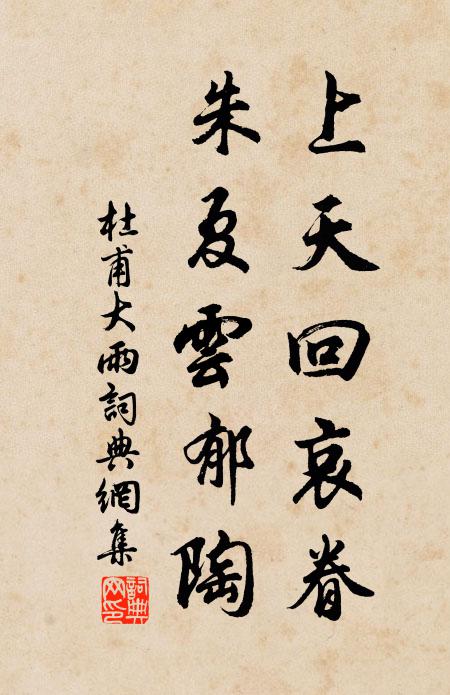 上天回哀眷
朱夏雲郁陶
杜甫大雨詞典網集
詞典網印